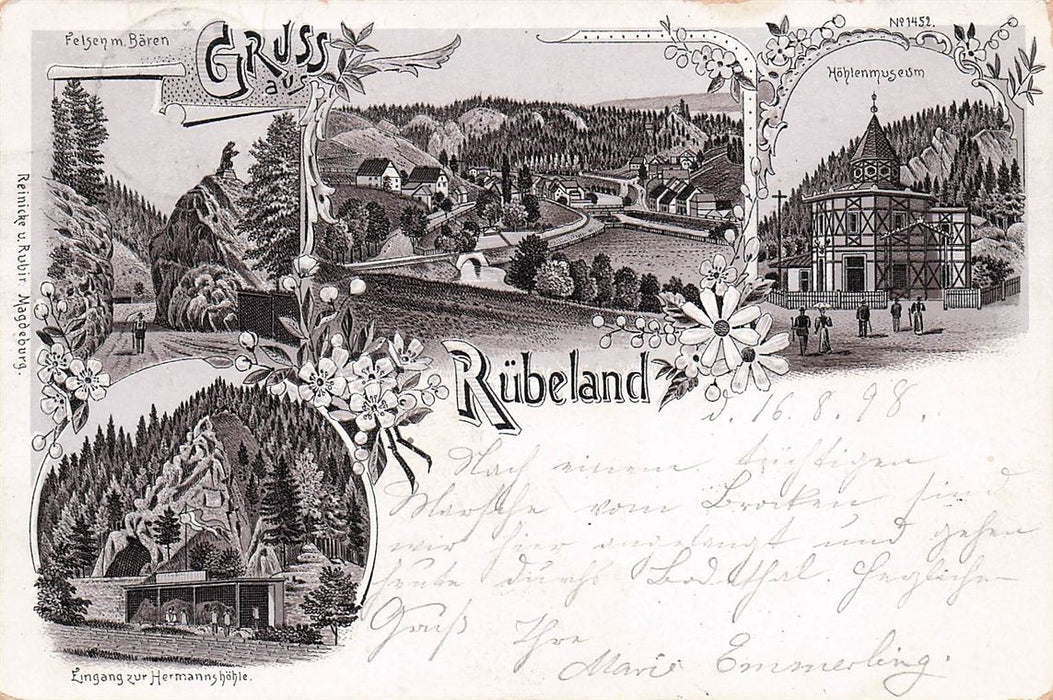 Felsen m. Bären
GRUSS
aus
No 1452.
Höhlenmuseum
Reinicke u. Rubin Magdeburg.
Rübeland
d. 16. 8. 98.
Nach einem tüchtigen
Marsche vom Brocken sind
wir hier angelangt und gehen
heute durchs Bodethal.
Gruß Ihre
Marie Emmerling.
Eingang zur Hermannshöhle.